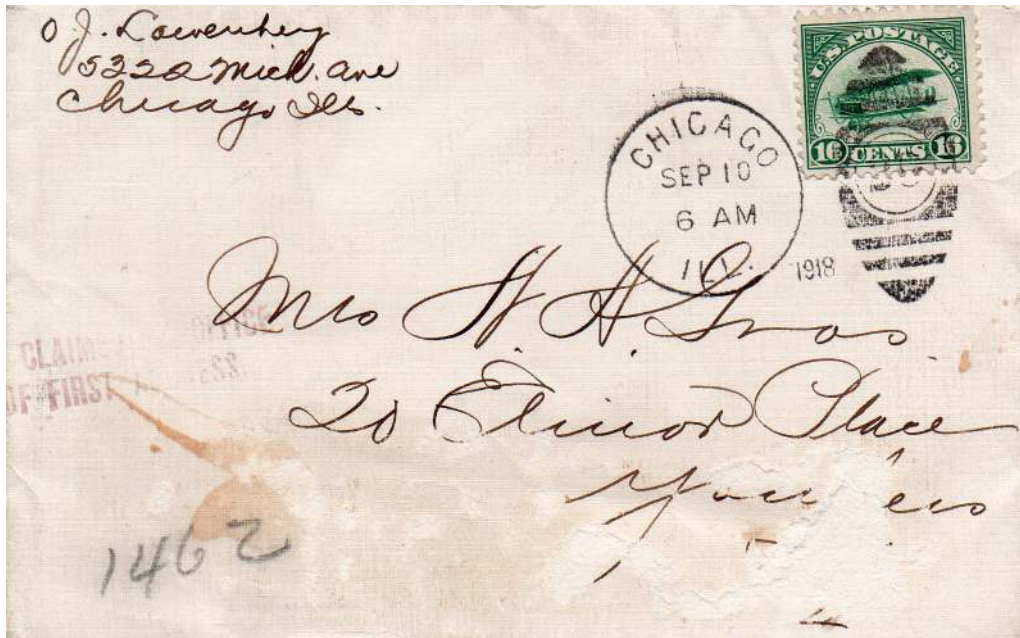 O J. Lowenberg
5220 Mich. ave
Chicago Ills.
U.S. POSTAGE
16 CENTS 16
CHICAGO
SEP 10
6 AM
ILL.
1918
Mrs H. H.
20 Elinor Place
CLAIM OFFICE
OF FIRST ESS.
1462